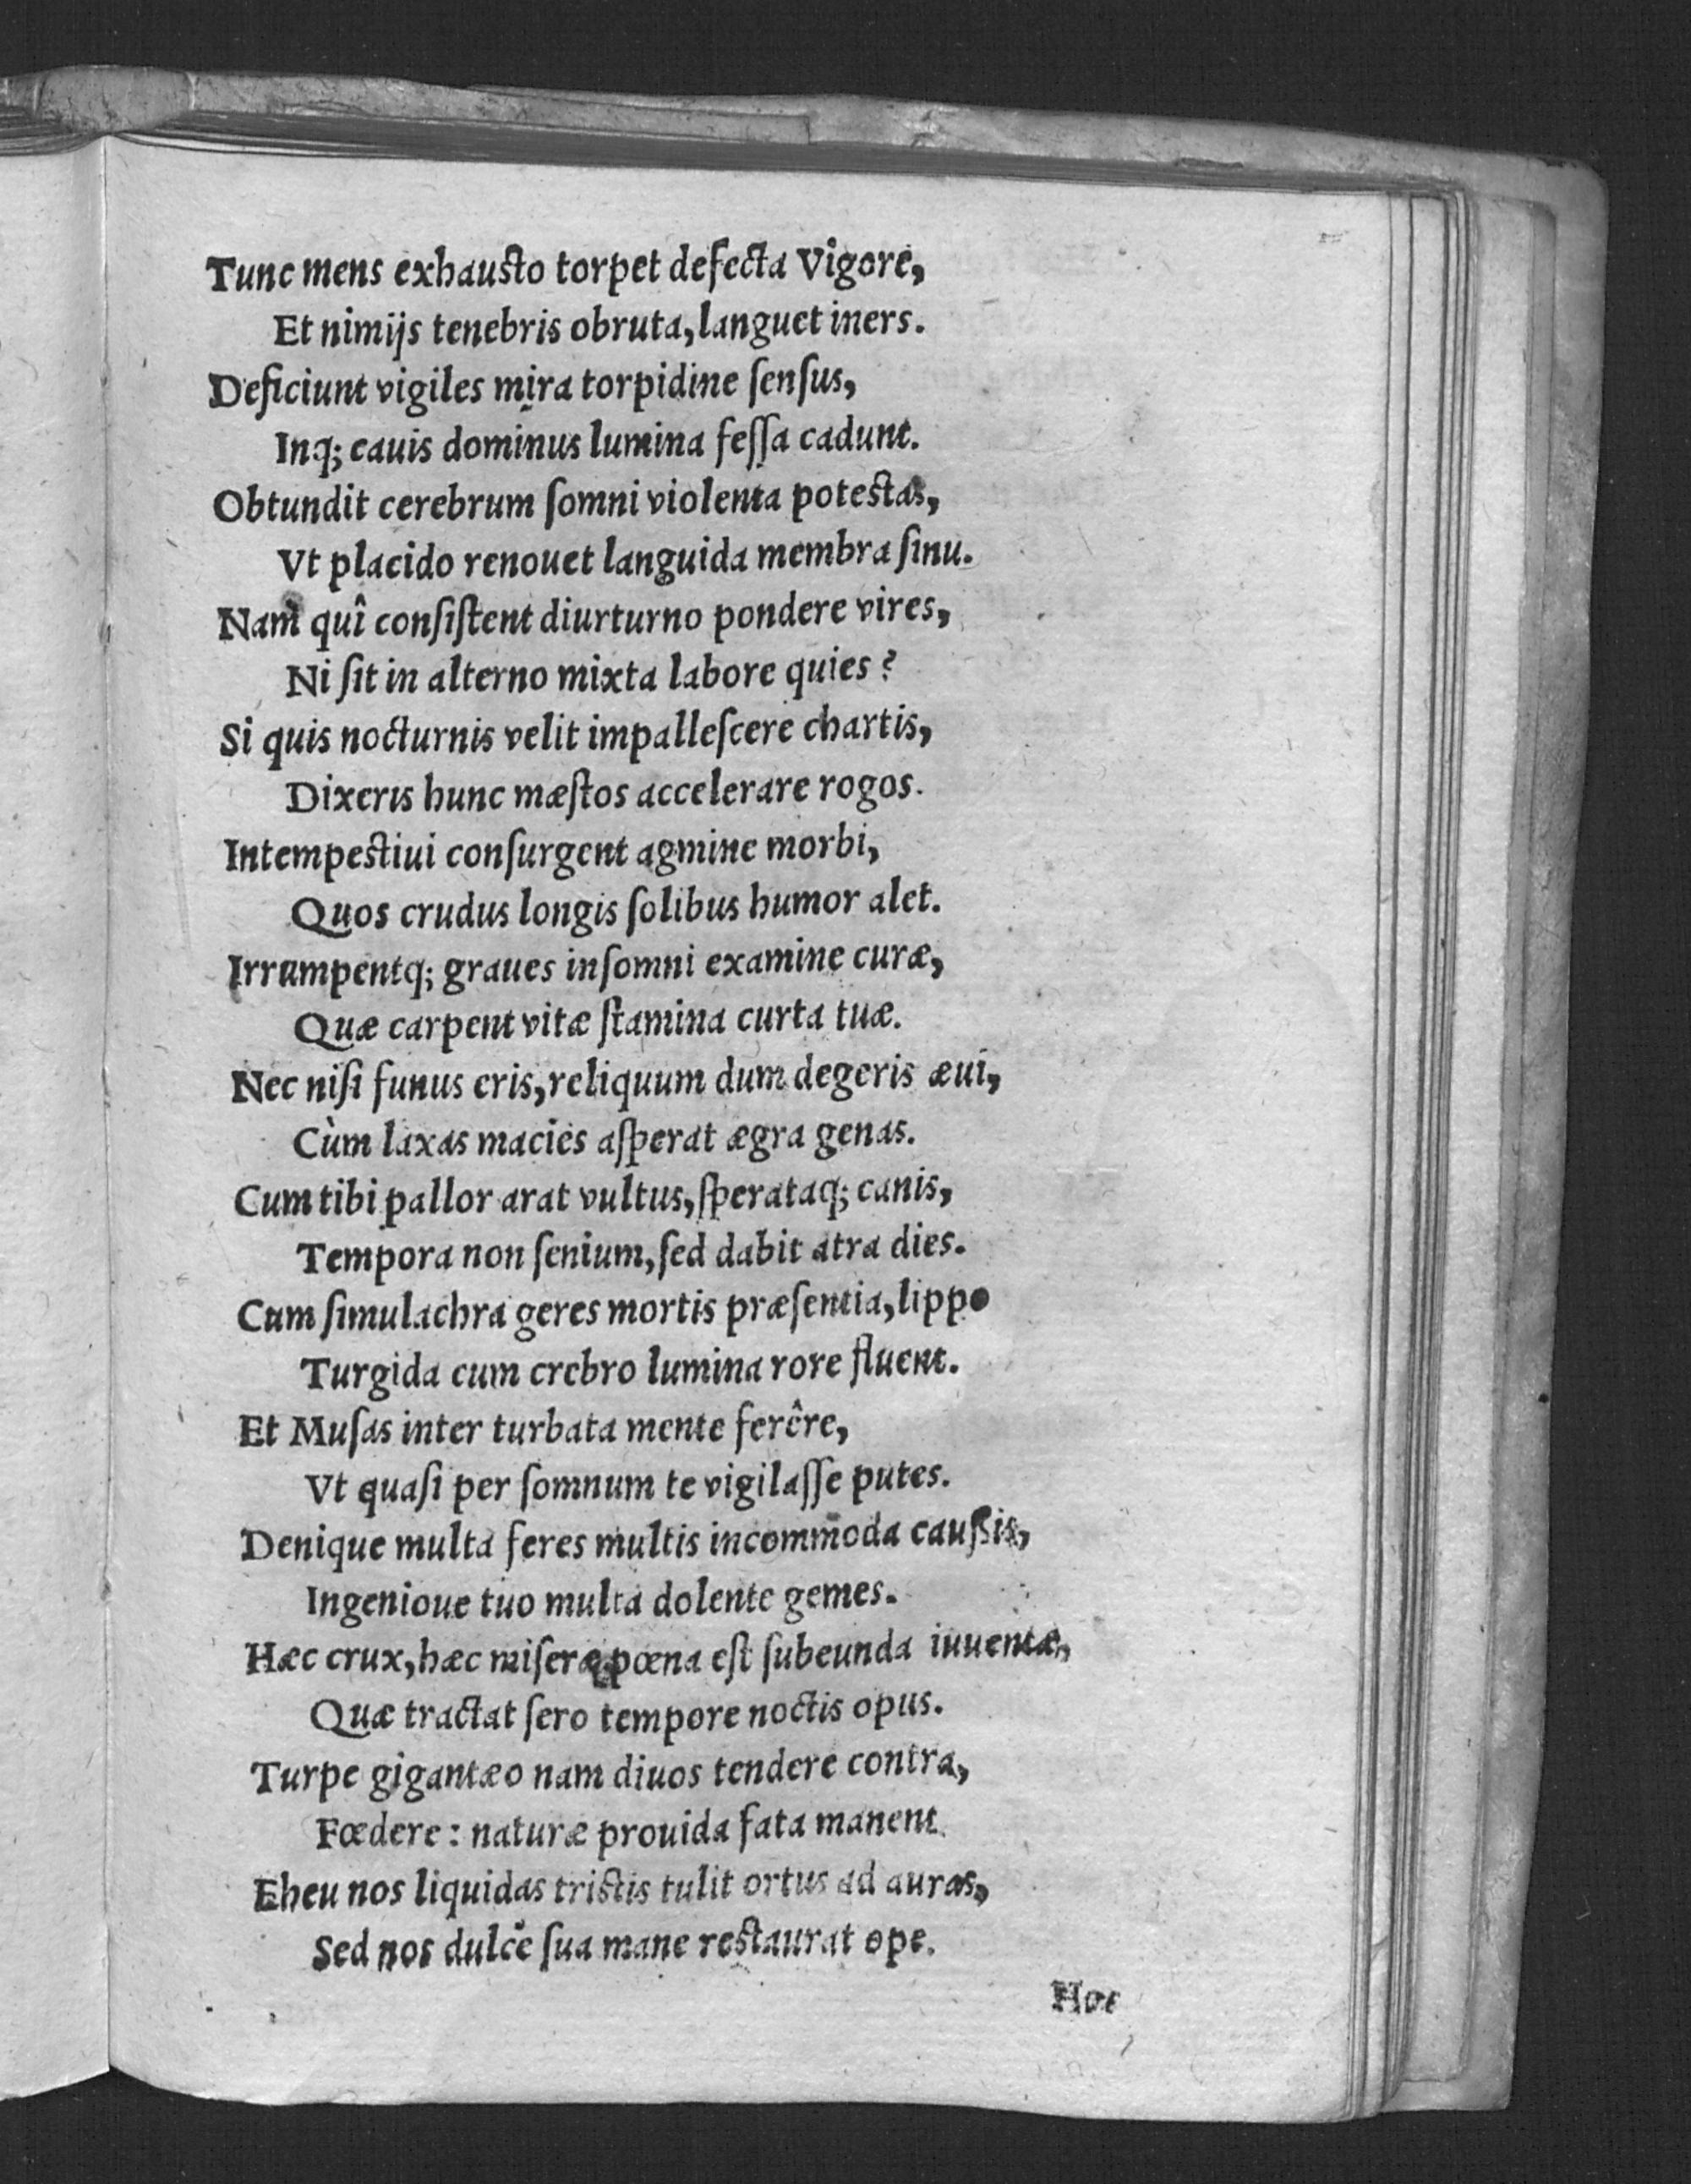 Tunc mens exhausto torpet defecta Vigore,
Et nimijs tenebris obruta, languet iners.
Deficiunt vigiles mira torpidine ſenſus,
Inq; cauis dominus lumina feſſa cadunt.
Obtundit cerebrum ſomni violenta potestas,
Vt placido renouet languida membra ſinu.
Nam quî conſiſtent diurturno pondere vires,
Ni ſit in alterno mixta labore quies?
Si quis nocturnis velit impalleſcere chartis,
Dixeris hunc mæſtos accelerare rogos.
Intempestiui conſurgent agmine morbi,
Quos crudus longis ſolibus humor alet.
Irrumpentq; graues inſomni examine curæ,
Quæ carpent vitæ ſtamina curta tuæ.
Nec niſi funus eris, reliquum dum degeris æui,
Cùm laxas macies aſperat ægra genas.
Cum tibi pallor arat vultus, ſperataq; canis,
Tempora non ſenium, ſed dabit atra dies.
Cum ſimulachra geres mortis præſentia, lippo
Turgida cum crebro lumina rore fluent.
Et Muſas inter turbata mente ferêre,
Vt quaſi per ſomnum te vigilaſſe putes.
Denique multa feres multis incommoda cauſsis,
Ingenioue tuo multa dolente gemes.
Hæc crux, hæc miſeræ pœna eſt ſubeunda iuuentæ,
Quæ tractat ſero tempore noctis opus.
Turpe gigantæo nam diuos tendere contra,
Fœdere: naturæ prouida fata manent.
Eheu nos liquidas tristis tulit ortus ad auras,
Sed nos dulcè ſua mane restaurat ope.
Hoc